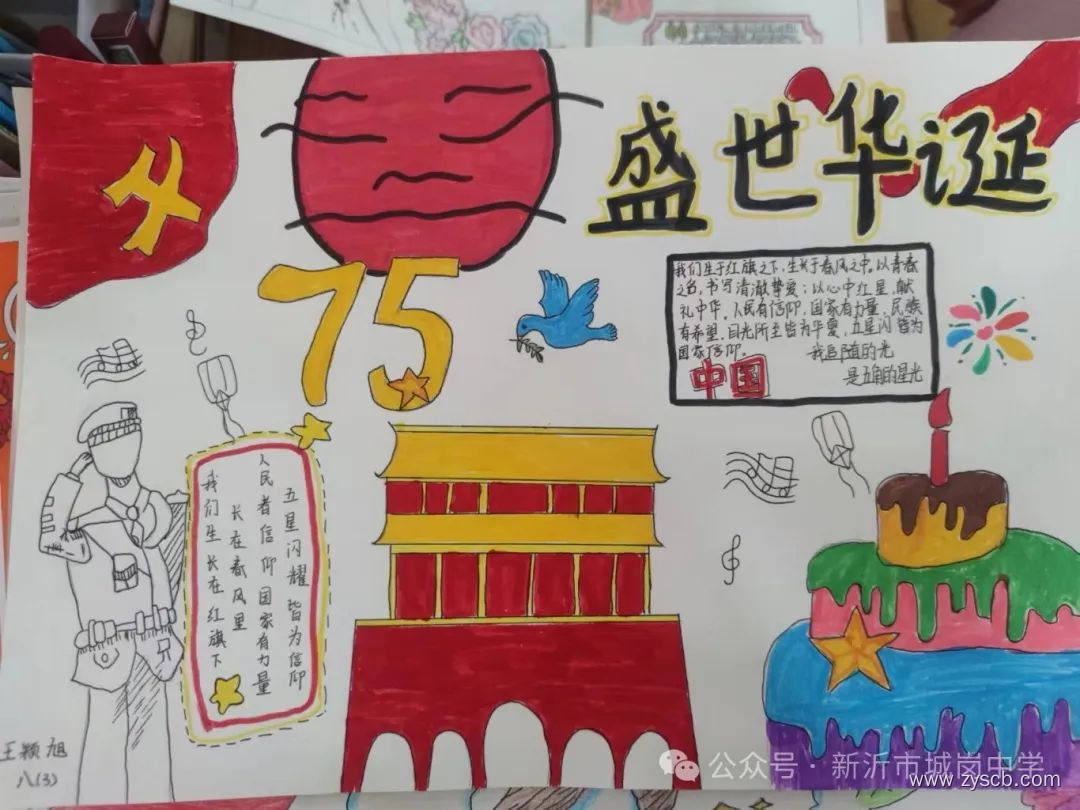 盛世华诞
75
我们生于红旗之下，生长于春风之中。以青春
之名，书写清澈挚爱；以心中红星，献
礼中华。人民有信仰，国家有力量，民族
有希望。目光所至皆为华夏，五星闪皆为
国家信仰。
我追随的光
是五角的星光
中国
五星闪耀皆为信仰
人民者信仰国家有力量
长在春风里
我们生长在红旗下
王颖旭
八(3)
公众号·新沂市城岗中学
www.zyscb.com